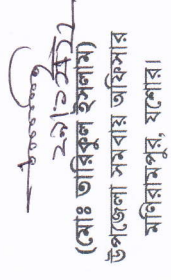 ২৯/৬/২১
(মোঃ তারিকুল ইসলাম)
উপজেলা সমবায় অফিসার
মণিরামপুর, যশোর।